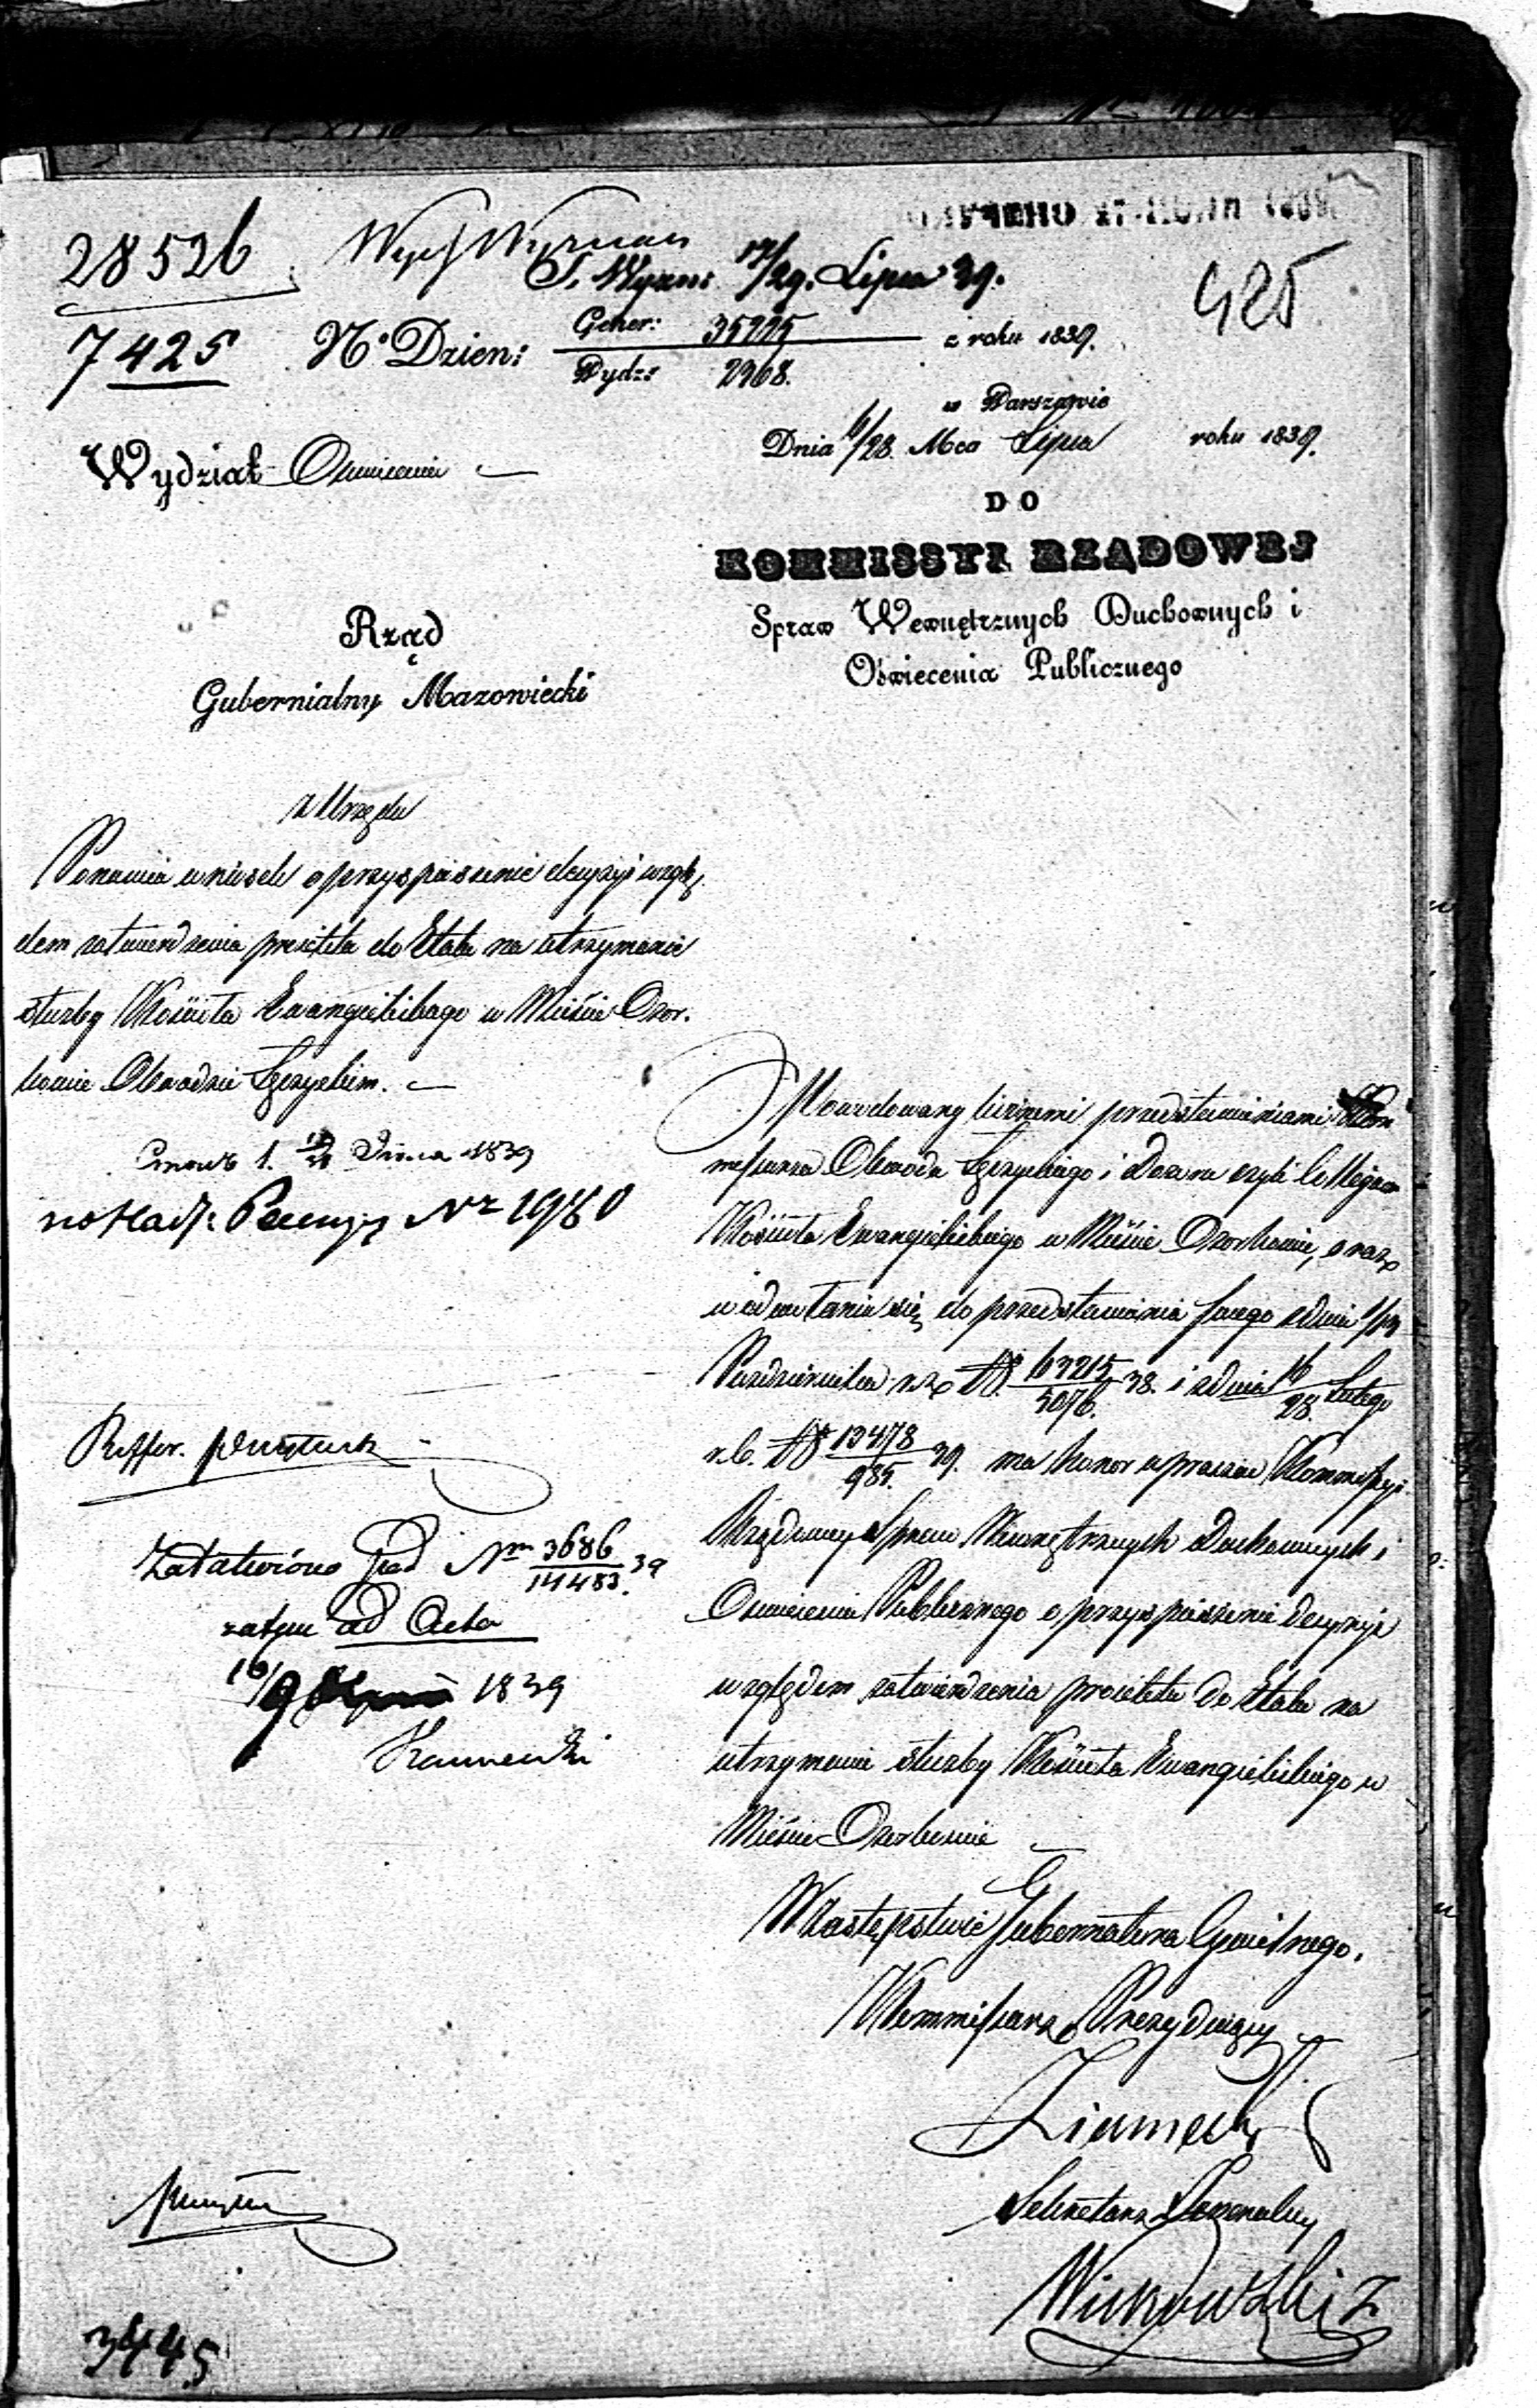 28526
7425
Wydz Wyznań
S. Wyzn: 17/29. Lipca 39.
425
Nº Dzien: Gener: 35225 / Wydz: 2968. z roku 1839.
w Warszawie
Dnia 16/28 Mca Lipca roku 1839.
Wydział Oświecenia
DO
KOMMISSYI RZĄDOWEJ
Spraw Wewnętrznych Duchownych i
Oświecenia Publicznego
Rząd
Gubernialny Mazowiecki
z Urzędu
Ponawia wniosek o przyspieszenie decyzyi wzglę-
dem zatwierdzenia projektu do Etatu na utrzymanie
służby Kościoła Ewangielickiego w Mieście Ozor-
kowie Obwodzie Łęczyckim.
1839
Nr 1980
Reffer.
Załatwiono pod Nrm 3686/14483. 39
zatym ad Acta
1839
Powodowany licznemi przedstawieniami Kom
missarza Obwodu Łęczyckiego i Dozoru czyli Collegium
Kościoła Ewangielickiego w Mieście Ozorkowie, oraz
w odwołaniu się do przedstawienia swego z dnia 1/13
Października r. z. Nº 63215/5076. 38. i z dnia 16/28. Lutego
r. b. Nº 13478/985. 39. ma honor upraszać Kommissyi
Rządowey Spraw Wewnętrznych Duchownych i
Oświecenia Publicznego o przyspieszenie decyzyi
względem zatwierdzenia projektu do Etatu na
utrzymanie służby Kościoła Ewangielickiego w
Mieście Ozorkowie
W Zastępstwie Gubernatora Cywilnego.
Kommissarz Prezyduiący
Sekretarz Jeneralny
3445